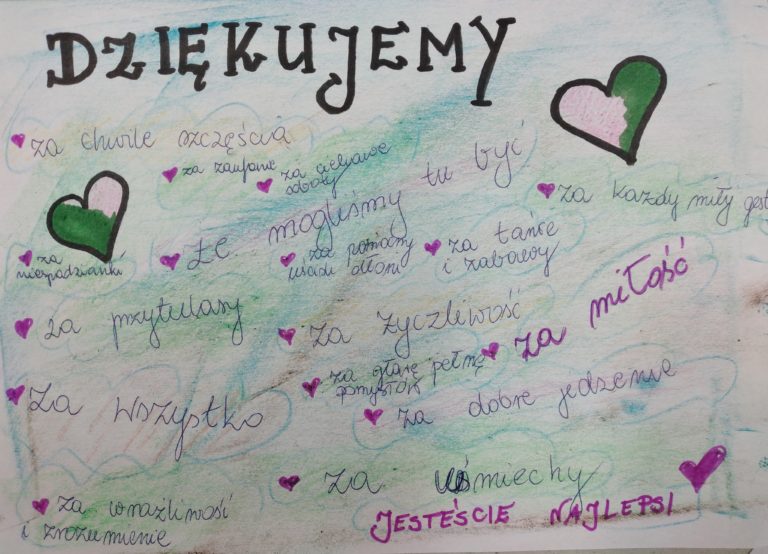 DZIĘKUJEMY
za chwile szczęścia
za zaufanie
za ciekawe
soboty
że mogliśmy tu być
za każdy miły gest
za
niespodzianki
za
uścisk dłoni
za tańce
i zabawy
za przytulasy
za życzliwość
za miłość
za wszystko
za głowę pełną
pomysłów
za dobre jedzenie
za uśmiechy
za wrażliwość
i zrozumienie
JESTEŚCIE NAJLEPSI